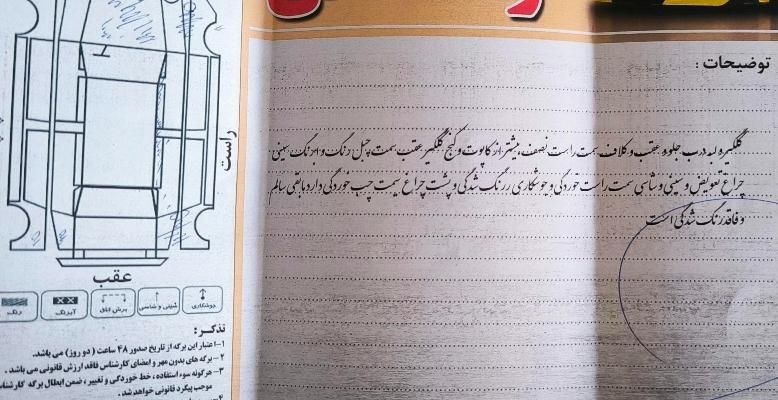 توضیحات :
گلگیر و لبه درب جلو و عقب و کلاف سمت راست نصف بیشتر از کاپوت و کنج گلگیر عقب سمت چپ رنگ و ابرنگ سینی
چراغ تعویض و سینی و شاسی سمت راست خوردگی و جوشکاری و رنگ شدگی و پشت چراغ سمت چپ خوردگی دارد مابقی سالم
و فاقد رنگ شدگی است
راست
عقب
جوشکاری
سینی و شاسی
برش اتاق
آبرنگ
رنگ
تذکر :
۱-اعتبار این برگه از تاریخ صدور ۴۸ ساعت ( دو روز) می باشد.
۲-برگه های بدون مهر و امضای کارشناس فاقد ارزش قانونی می باشد .
۳-هرگونه سوء استفاده ، خط خوردگی و تغییر ، ضمن ابطال برگه کارشنا
موجب پیگرد قانونی خواهد شد .
۴-